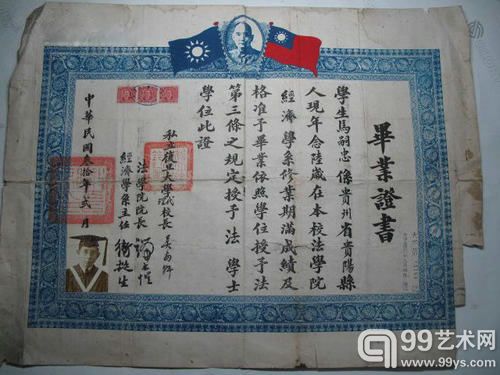 畢業證書
學生馬嗣忠係貴州省貴陽縣
人現年念陸歲在本校法學院
經濟學系修業期滿成績及
格准予畢業依照學位授予法
第三條之規定授予法學士
學位此證
私立復旦大學代理校長吳南軒
法學院院長
經濟學系主任衛挺生
中華民國叁拾年貳月
99艺术网
www.99ys.com